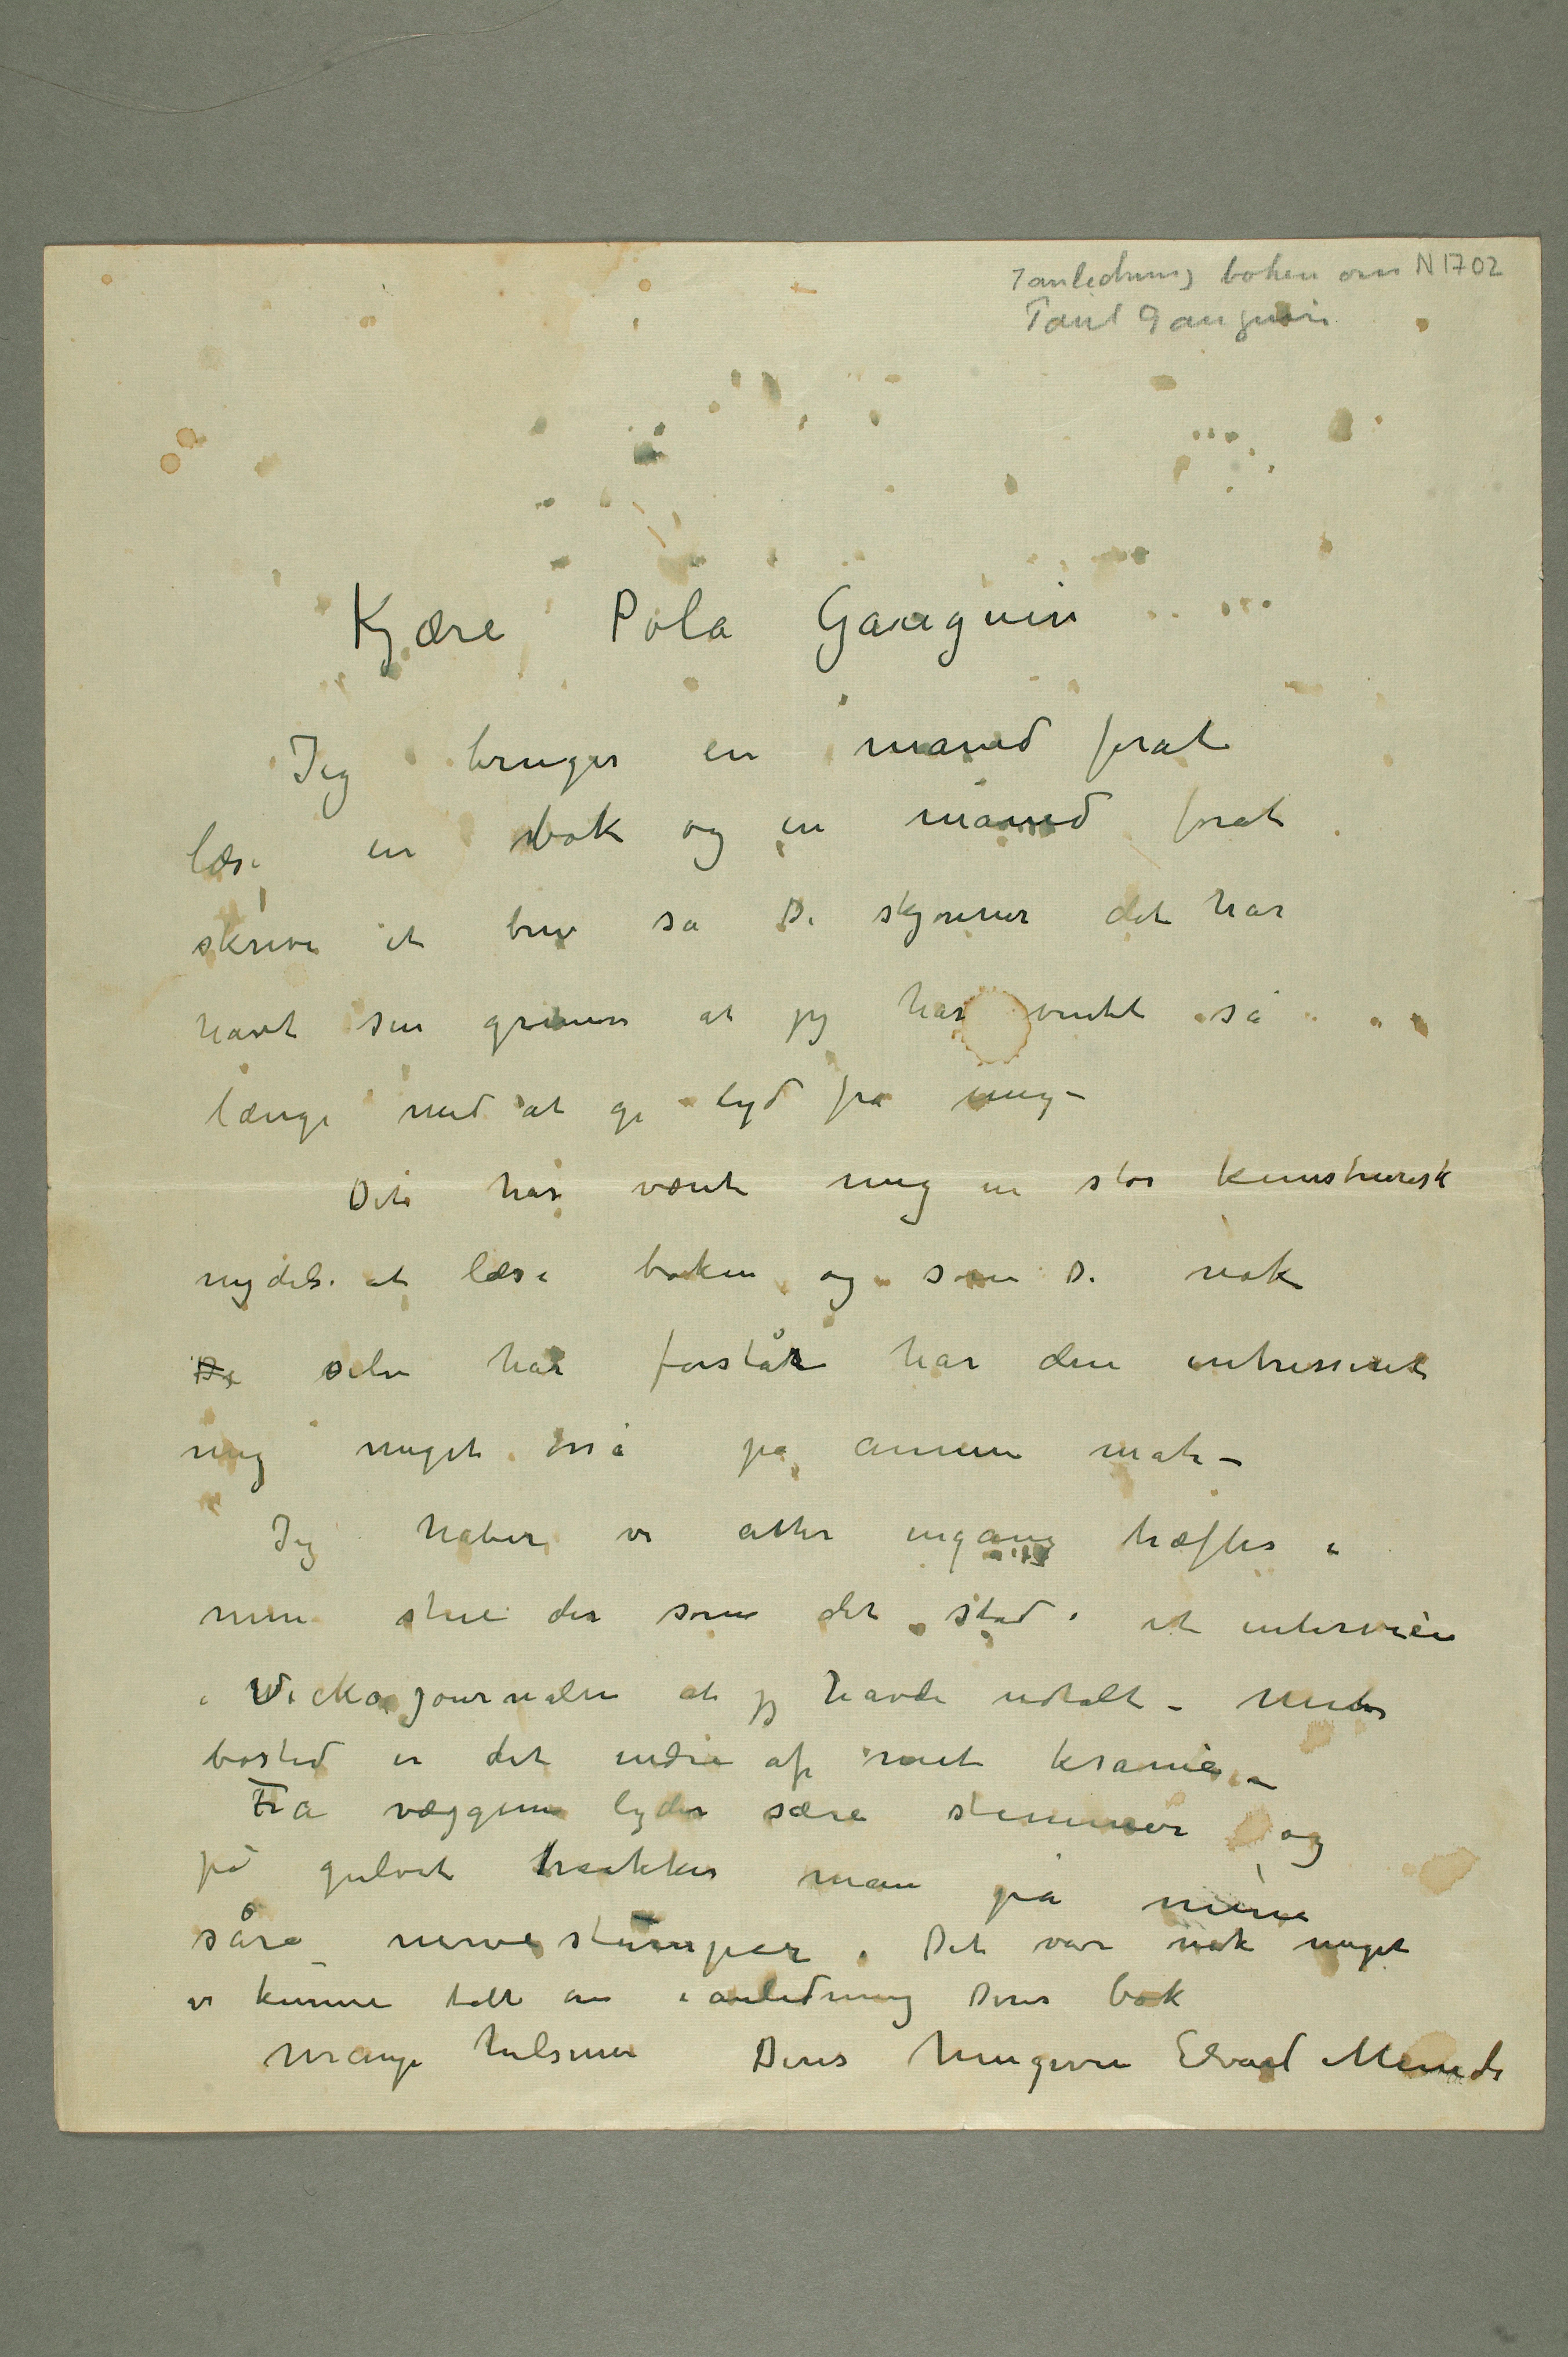 Ianledning boken om N 1702
Paul Gauguin
Kjære Pola Gauguin
Jeg bruger en måned forat
læse en bok og en måned forat
skrive et brev så De skjønner det har
havt sin grunn at jeg har ventet så
længe med at gi lyd fra mig –
Det har vært mig en stor kunstnerisk
nydelse at læse boken og som De nok
De selv har forstår har den intresseret
mig meget osså på annen måte –
Jeg håber vi atter engang træffes i
min stue der som det stod i et interview
i Veckojournalen at jeg havde udtalt – Mit
bosted er det indre af mit kranie –
Fra væggene lyder sære stemmer og
på gulvet trakker man på mine
såre nervestumper. Det var nok meget
vi kunne talt om i anledning Deres bok
Mange hilsener Deres hengivne Edvard Munch